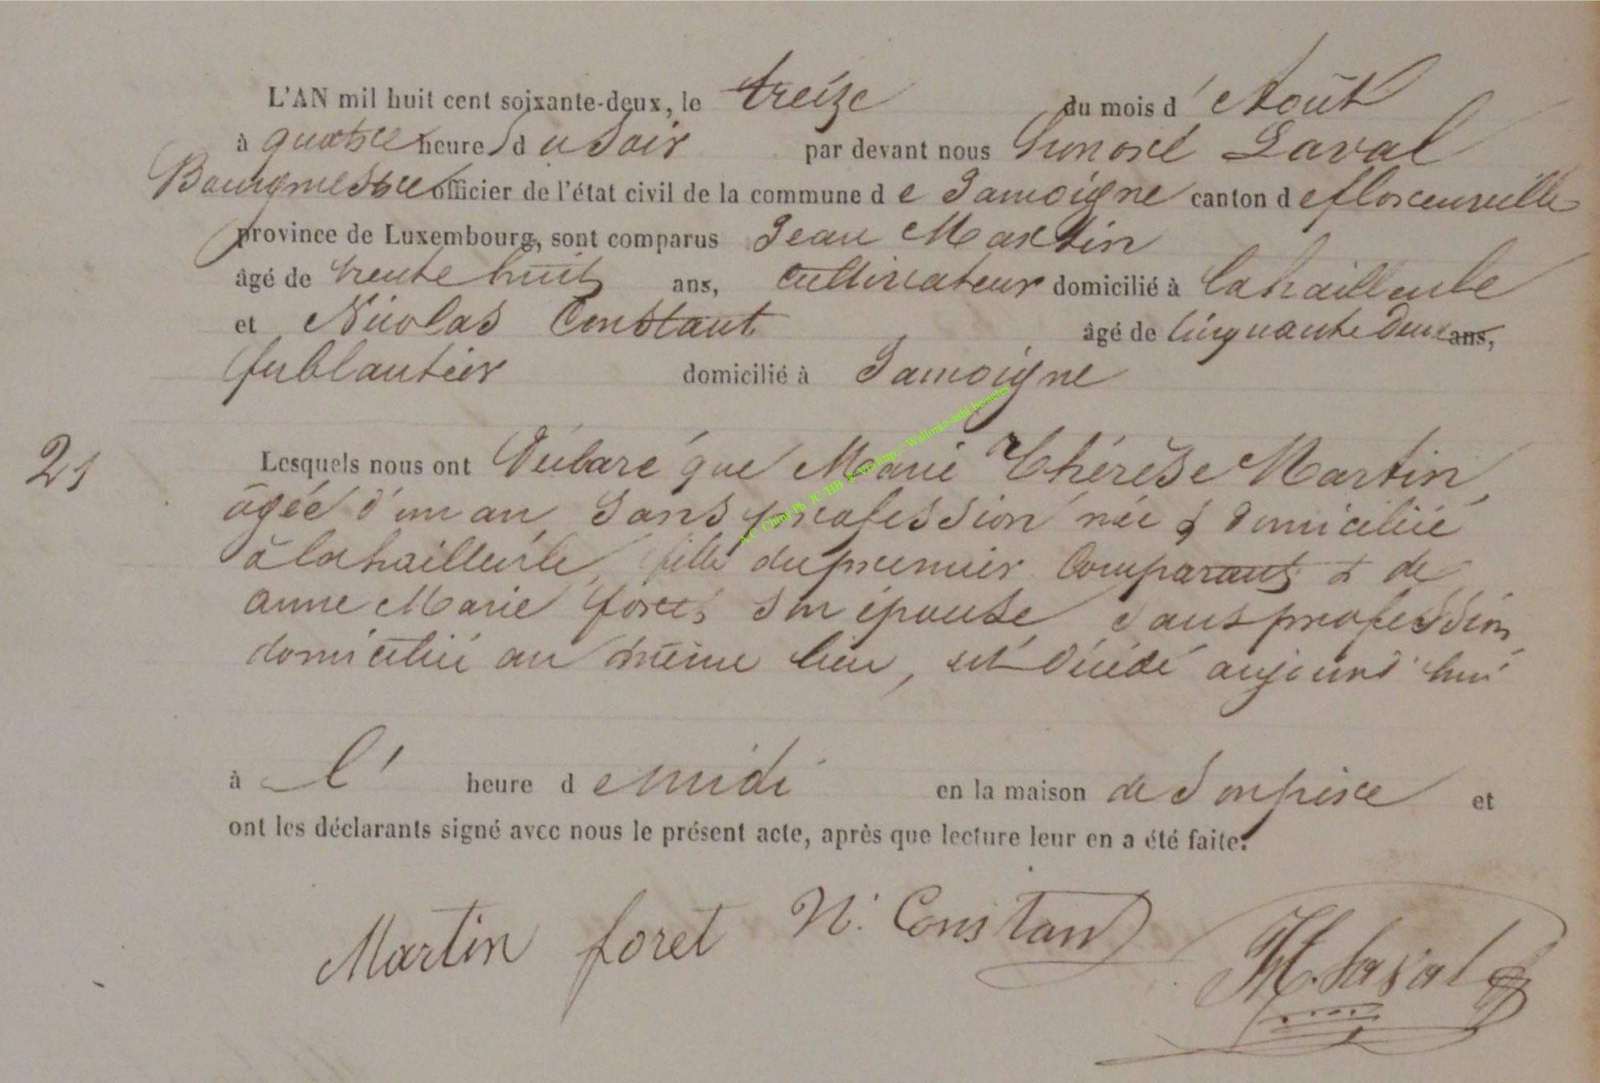 L'AN mil huit cent soixante-deux, le treize du mois d'Août
à quatre heures du Soir par devant nous honoré Laval
Bourgmestre officier de l'état civil de la commune de Jamoigne canton de florenville
province de Luxembourg, sont comparus Jean Martin
âgé de trente huit ans, cultivateur domicilié à lahailleule
et Nicolas Constant âgé de cinquante deux ans,
ferblantier domicilié à Jamoigne
21 Lesquels nous ont Déclaré que Marie Thérèse Martin,
âgée d'un an, Sans profession née & domiciliée
à lahailleule, fille du premier Comparant & de
anne Marie foret, Son épouse Sans profession,
domiciliée au même lieu, est Décédé aujourd'hui
à l' heure de midi en la maison de Son père et
ont les déclarants signé avec nous le présent acte, après que lecture leur en a été faite.
Martin foret N. Constant H. Laval